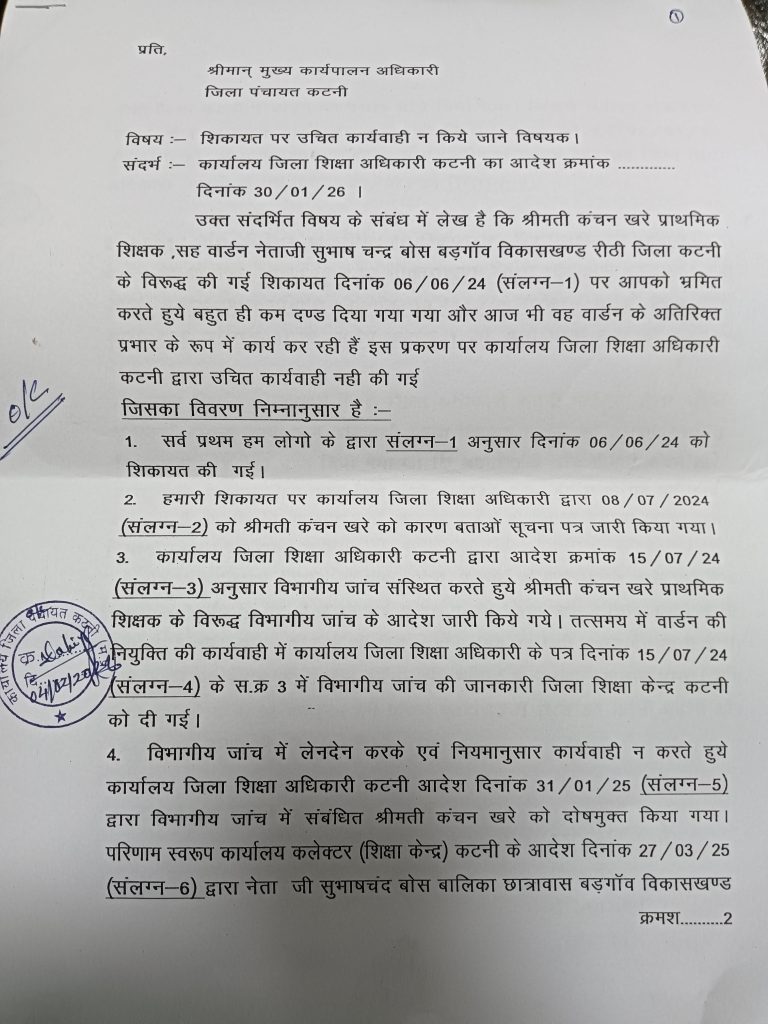 ①
प्रति,
श्रीमान् मुख्य कार्यपालन अधिकारी
जिला पंचायत कटनी
विषय :– शिकायत पर उचित कार्यवाही न किये जाने विषयक।
संदर्भ :– कार्यालय जिला शिक्षा अधिकारी कटनी का आदेश क्रमांक .............
दिनांक 30/01/26 ।
उक्त संदर्भित विषय के संबंध में लेख है कि श्रीमती कंचन खरे प्राथमिक
शिक्षक ,सह वार्डन नेताजी सुभाष चन्द्र बोस बड़गॉव विकासखण्ड रीठी जिला कटनी
के विरूद्ध की गई शिकायत दिनांक 06/06/24 (संलग्न–1) पर आपको भ्रमित
करते हुये बहुत ही कम दण्ड दिया गया गया और आज भी वह वार्डन के अतिरिक्त
प्रभार के रूप में कार्य कर रही हैं इस प्रकरण पर कार्यालय जिला शिक्षा अधिकारी
कटनी द्वारा उचित कार्यवाही नही की गई
जिसका विवरण निम्नानुसार है :–
1. सर्व प्रथम हम लोगो के द्वारा संलग्न–1 अनुसार दिनांक 06/06/24 को
शिकायत की गई।
2. हमारी शिकायत पर कार्यालय जिला शिक्षा अधिकारी द्वारा 08/07/2024
(संलग्न–2) को श्रीमती कंचन खरे को कारण बताओं सूचना पत्र जारी किया गया।
3. कार्यालय जिला शिक्षा अधिकारी कटनी द्वारा आदेश क्रमांक 15/07/24
(संलग्न–3) अनुसार विभागीय जांच संस्थित करते हुये श्रीमती कंचन खरे प्राथमिक
शिक्षक के विरूद्ध विभागीय जांच के आदेश जारी किये गये। तत्समय में वार्डन की
नियुक्ति की कार्यवाही में कार्यालय जिला शिक्षा अधिकारी के पत्र दिनांक 15/07/24
(संलग्न–4) के स.क्र 3 में विभागीय जांच की जानकारी जिला शिक्षा केन्द्र कटनी
को दी गई।
4. विभागीय जांच में लेनदेन करके एवं नियमानुसार कार्यवाही न करते हुये
कार्यालय जिला शिक्षा अधिकारी कटनी आदेश दिनांक 31/01/25 (संलग्न–5)
द्वारा विभागीय जांच में संबंधित श्रीमती कंचन खरे को दोषमुक्त किया गया।
परिणाम स्वरूप कार्यालय कलेक्टर (शिक्षा केन्द्र) कटनी के आदेश दिनांक 27/03/25
(संलग्न–6) द्वारा नेता जी सुभाषचंद बोस बालिका छात्रावास बड़गॉव विकासखण्ड
क्रमश..........2
o/c
कार्यालय जिला पंचायत कटनी म
क्र.
दि.